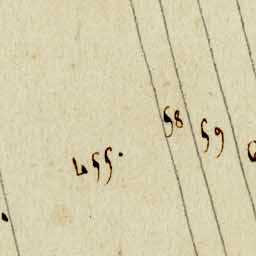 455.
58
59